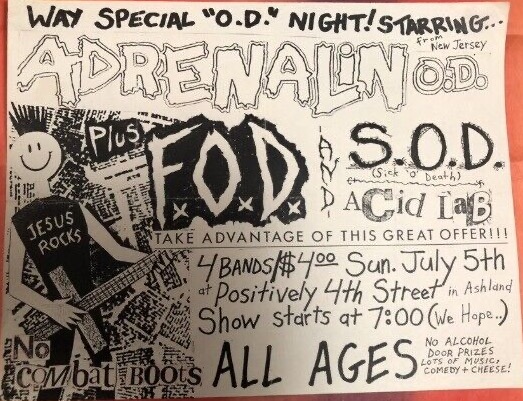 WAY SPECIAL "O.D." NIGHT! STARRING...
from New Jersey
ADRENALIN O.D.
PLUS F.O.D. AND S.O.D.
(Sick 'O' Death)
ACid LaB
JESUS
ROCKS
TAKE ADVANTAGE OF THIS GREAT OFFER!!!
4 BANDS/$4.00 Sun. July 5th
at Positively 4th Street in Ashland
Show starts at 7:00 (We Hope..)
No
COMbat BOOts
ALL AGES
NO ALCOHOL
DOOR PRIZES
LOTS OF MUSIC,
COMEDY + CHEESE!